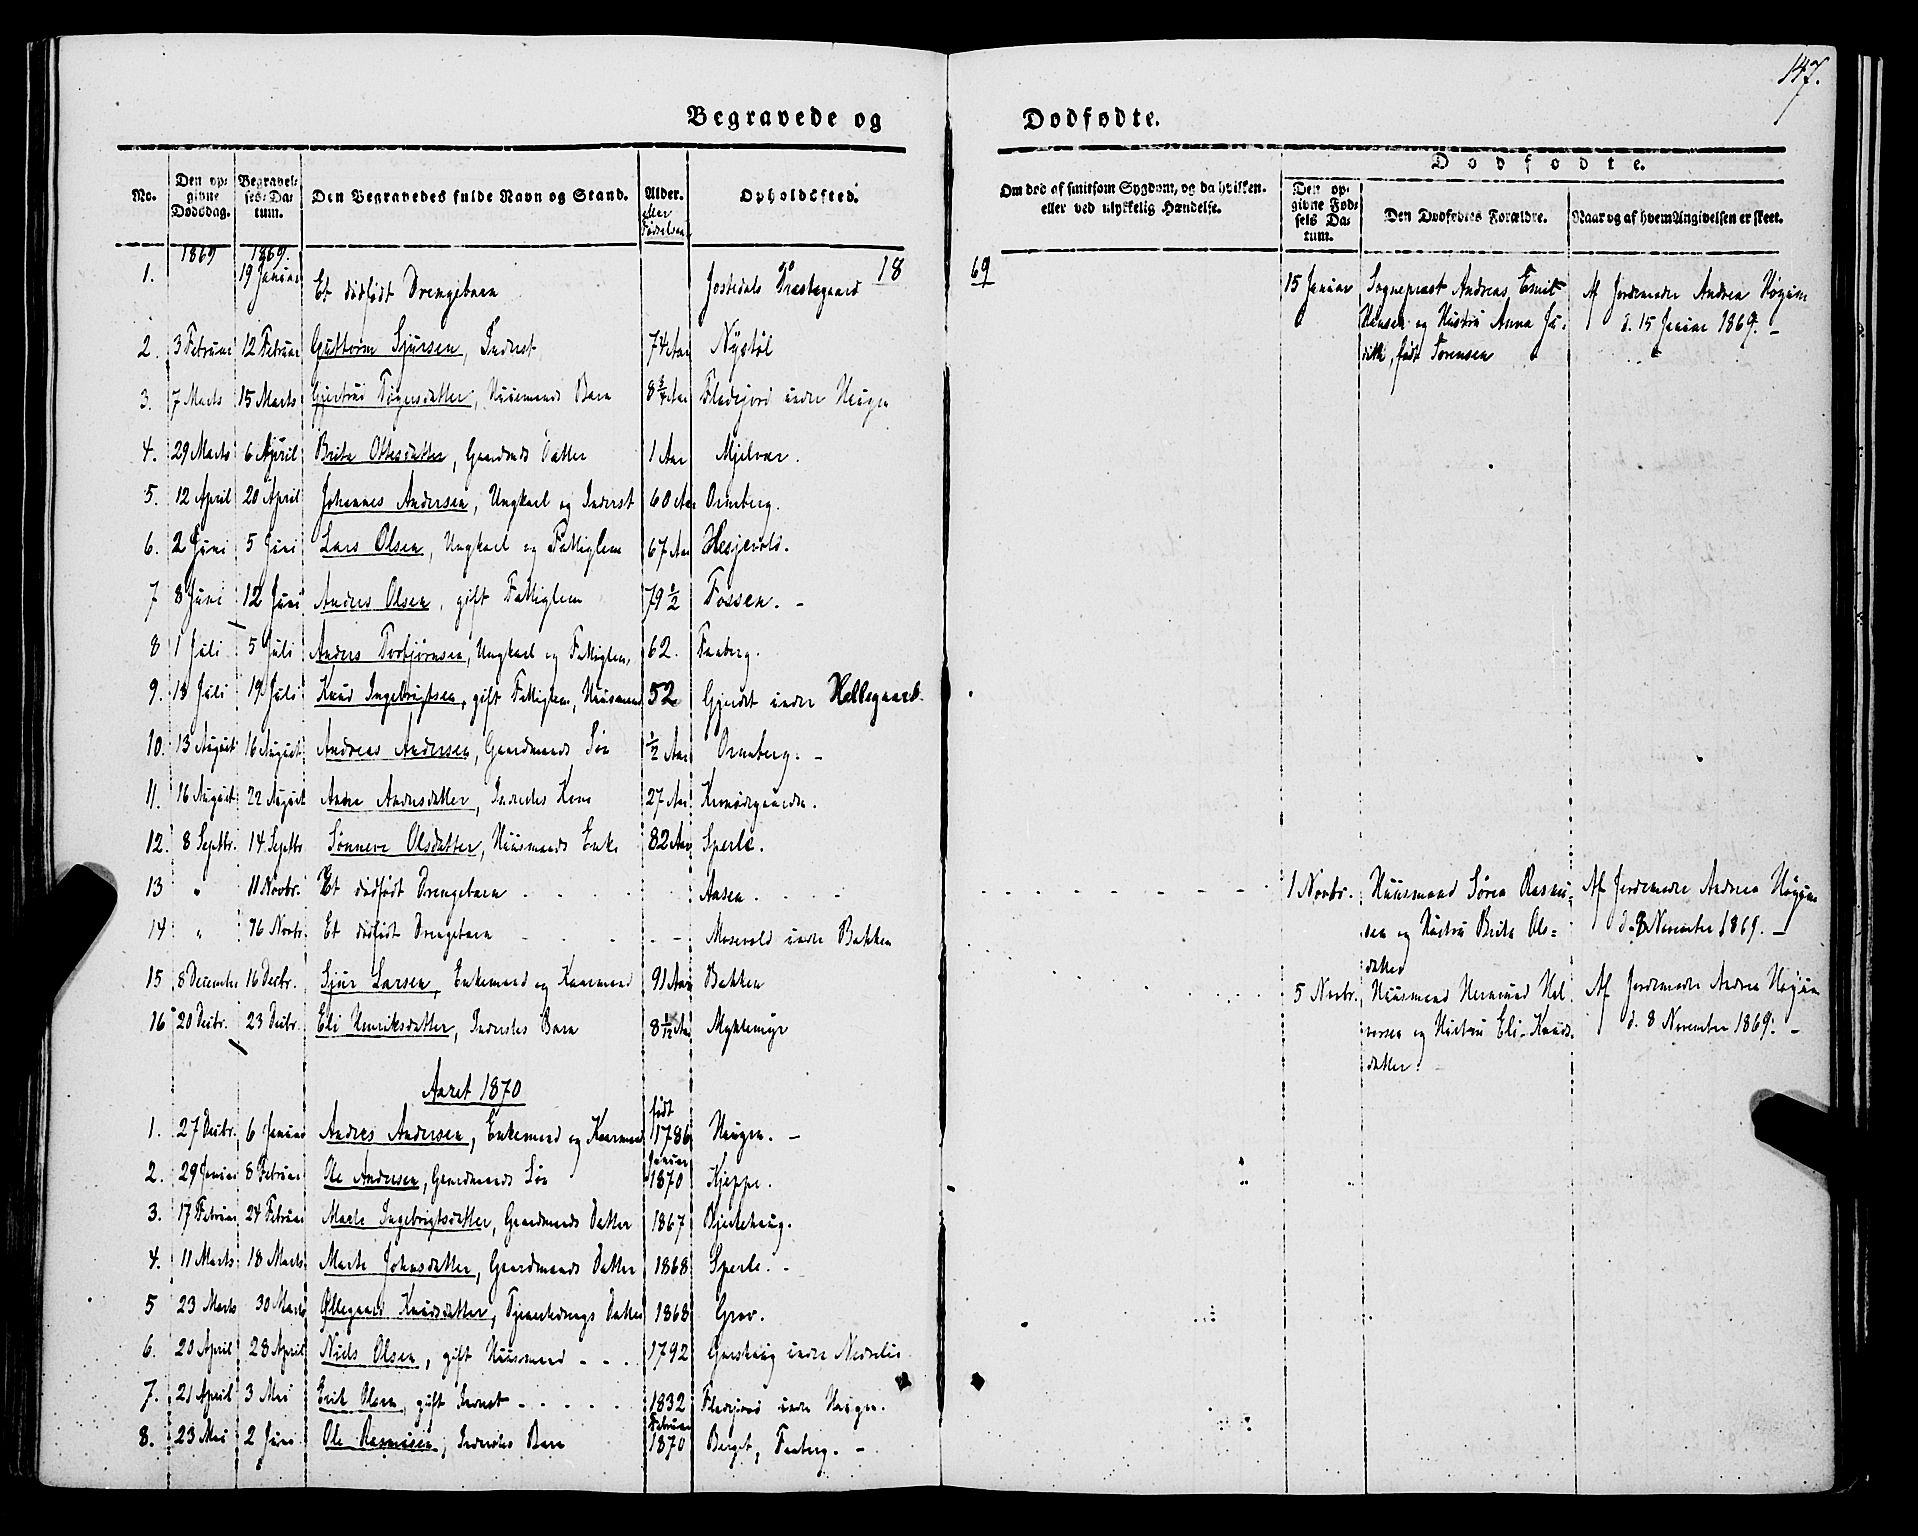 147.
Begravede og Dodfodte.
No. Den opgivne Dødsdag. Begravelses-Datum. Den Begravedes fulde Navn og Stand. Alder. eller Fødselsaar Opholdssted.
Om død af smitsom Sygdom, og da hvilken. eller ved ulykkelig Hændelse.
Dodfodte.
Den opgivne Fødsels Datum. Den Dødfødtes Forældre. Naar og af hvem Angivelsen er skeet.
1869 1869. 18 69
1. 19 Januar Et dødfødt Drengebarn Jostedals Præstegaard 15 Januar Sognepræst Andreas Emil Hansen og Hustru Anna Judithe, født Sorensen Af Jordemodre Andrea Høgum d. 15 Januar 1869. -
2. 3 Februar 12 Februar Guttorm Sjursen, Inderst 74 Aar Nystøl
3. 7 Marts 15 Marts Gjertrud Tøgersdatter, Huusmands Barn 8 3/4 Aar Fladejord under Haugen
4. 29 Marts 6 April Brita Ottesdatter, Gaardmds Datter 1 Aar Mjelvær.
5. 12 April 20 April Johannes Andersen, Ungkarl og Inderst 60 Aar Ormberg.
6. 2 Juni 5 Juni Lars Olsen, Ungkarl og Fattiglem 67 Aar Hesjevold.
7 8 Juni 12 Juni Anders Olsen, gift Fattiglem 79 1/2 Fossen. -
8 1 Juli 5 Juli Anders Torbjørnsen, Ungkarl og Fattiglem, 62. Faaberg.
9. 13 Juli 19 Juli Knud Ingebrigtsen, gift Fattiglem, Huusmand 52 Gjerdet under Hellegaard.
10. 13 August 16 August Andreas Andersen, Gaardmands Søn 1/2 Aar Ormberg. -
11. 16 August 22 August Anna Andersdatter, Inderstes Kone 27 Aar Kronegaarden.
12. 8 Septbr. 14 Septbr Sønneve Olsdatter, Huusmands Enke 82 Aar Sperle.
13 " 11 Novbr. Et dødfødt Drengebarn Aasen 1 Novbr. Huusmand Søren Rasmussen og Hustru Brita Olsdatter Af Jordemodre Andrea Høgum d. 8 November 1869. -
14 " 16 Novbr. Et dødfødt Drengebarn Mosevold under Bakken 5 Novbr. Huusmand Hermund Halvorsen og Hustru Eli Knudsdatter. Af Jordemodre Andrea Høgum d. 8 November 1869. -
15 8 December 16 Decbr. Sjur Larsen, Enkemand og Kaarmand 91 Aar Bakken
16 20 Decbr. 23 Decbr. Eli Henriksdatter, Inderstes Barn 8 1/12 Aar Myklemyr
Aaret 1870
1. 27 Decbr. 6 Januar Anders Andersen, Enkemand og Kaarmand født 1786 Haugen. -
2. 29 Januar 8 Februar Ole Andersen, Gaardmands Søn Januar 1870 Kjeppe.
3. 17 Februar 24 Februar Marte Ingebrigtsdatter, Gaardmands Datter 1867 Bjerkehaug.
4. 11 Marts 18 Marts Marte Johnsdatter, Gaardmands Datter 1868 Sperle. -
5 23 Marts 30 Marts Øllegaard Knudsdatter, Tjenestedrengs Datter 1868 Grov.
6. 20 April 28 April Niels Olsen, gift Huusmand 1792 Gaashaug under Nedrelie
7. 21 April 3 Mai Erik Olsen, gift Inderst 1832 Fladejord under Haugen.
8. 23 Mai 2 Juni Ole Rasmusen, Inderstes Barn Februar 1870 Berget, Faaberg. -